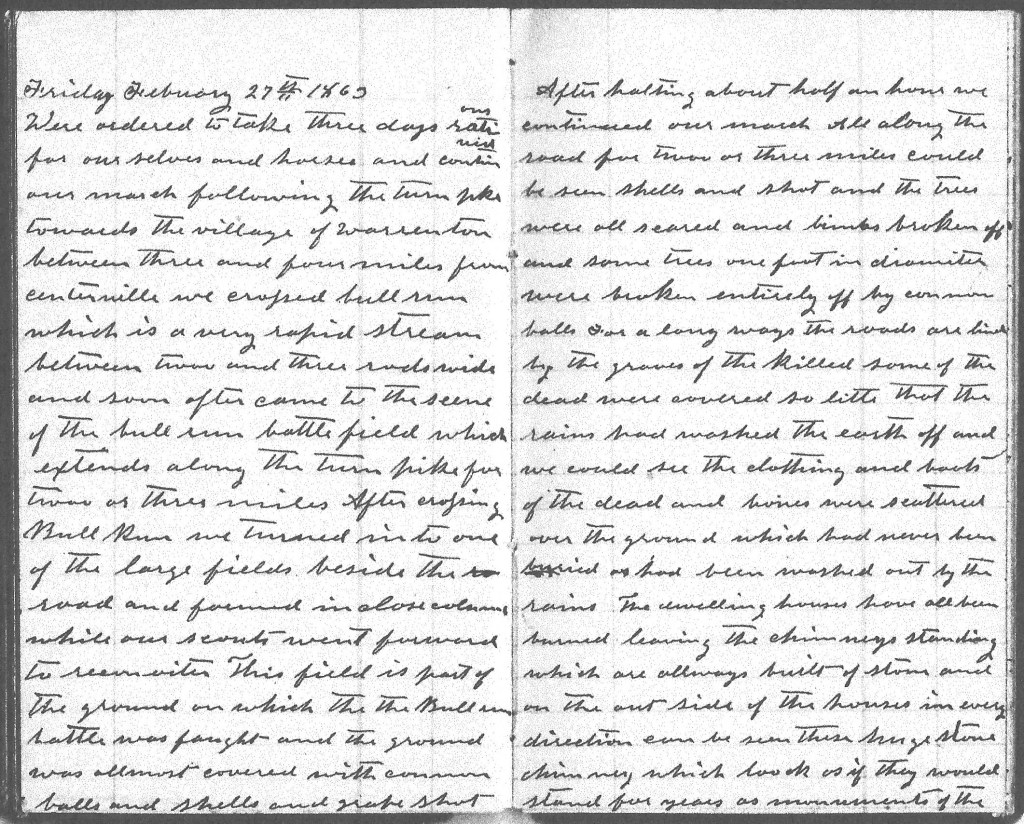 Friday February 27th 1863
Were ordered to take three days rations
for our selves and horses and contin
ued
our march following the turn pike
towards the village of Warrenton
between three and four miles from
centerville we crossed bull run
which is a very rapid stream
between twoo and three rods wide
and soon after came to the scene
of the bull run battle field which
extends along the turn pike for
twoo or three miles After crossing
Bull Run we turned in to one
of the large fields beside the
road and formed in close column
while our scouts went forward
to reconoiter This field is part of
the ground on which the the Bull run
battle was faught and the ground
was allmost covered with cannon
balls and shells and grape shot
After halting about half an hour we
continued our march All along the
road for twoo or three miles could
be seen shells and shot and the trees
were all scared and limbs broken off
and some trees one foot in diamiter
were broken entirely off by cannon
balls For a long ways the roads are lined
by the graves of the killed some of the
dead were covered so little that the
rains had washed the earth off and
we could see the clothing and boots
of the dead and bones were scattered
over the ground which had never been
buried or had been washed out by the
rains The dwelling houses have all been
burned leaving the chimneys standing
which are allways built of stone and
on the out side of the houses in every
direction can be seen these huge stone
chimney which loock as if they would
stand for years as monuments of the